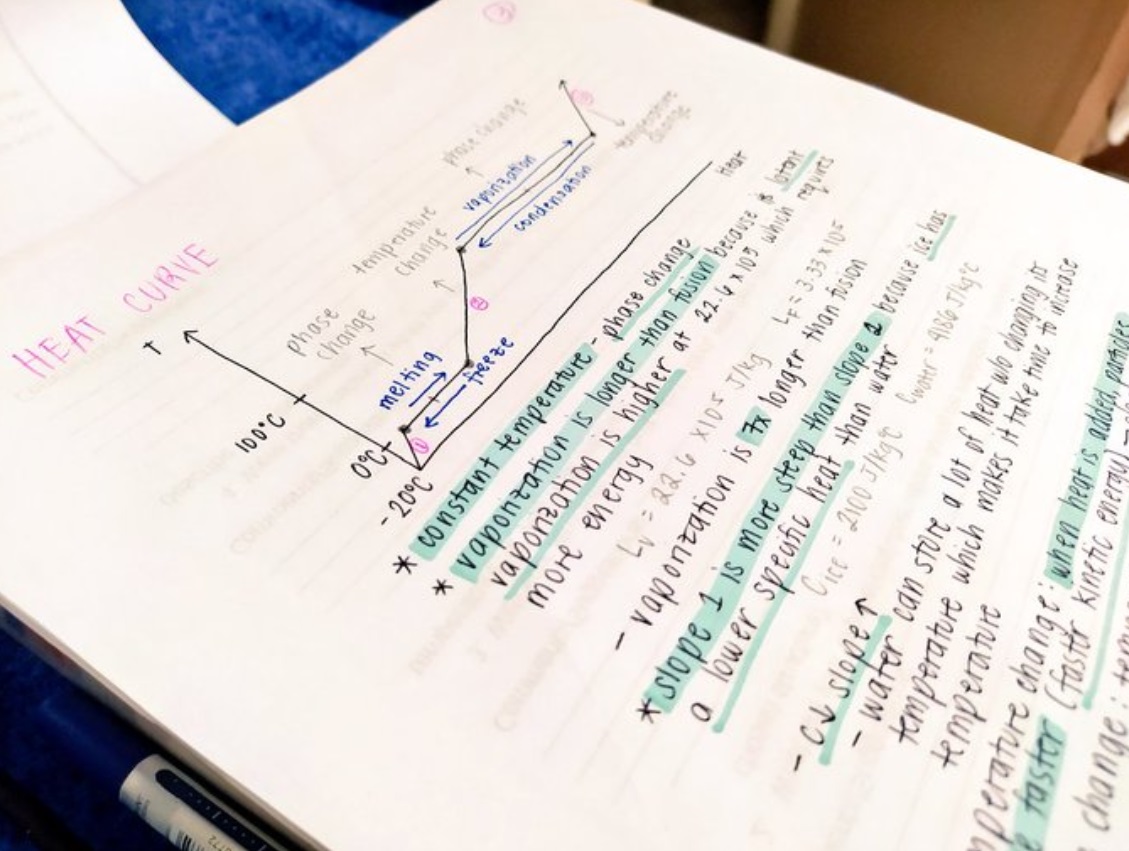 ③
HEAT CURVE
T
100°C
0°C
-20°C
phase
change
temperature
change
phase change
temperature
change
melting
freeze
vaporization
condensation
①
②
③
Heat
* constant temperature - phase change
* vaporization is longer than fusion because is latent
vaporization is higher at 22.6 x 10⁵ which requires
more energy
Lv = 22.6 x10⁵ J/kg LF = 3.33 x 10⁵
- vaporization is 7x longer than fusion
* slope 1 is more steep than slope 2 because ice has
a lower specific heat than water
Cice = 2100 J/kg°C Cwater = 4186 J/kg°C
- C↓ slope↑
- water can store a lot of heat w/o changing its
temperature which makes it take time to increase
temperature
perature change: when heat is added, particles
faster (faster kinetic energy)
change: